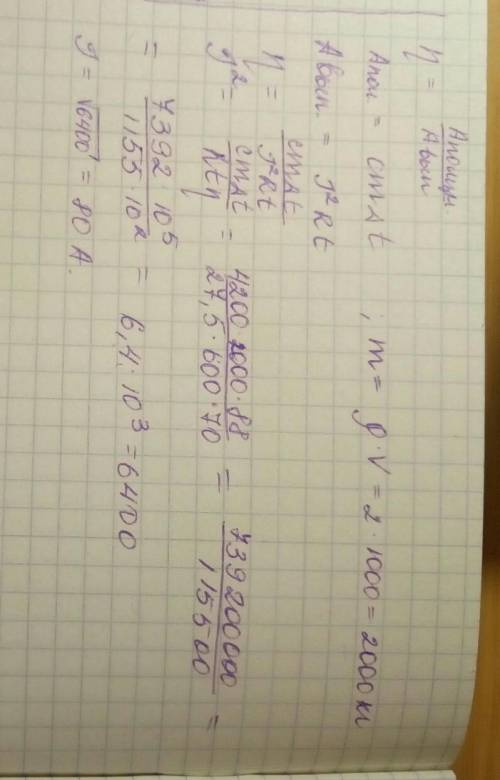 η = Аполезн / Авып
Апол = cmΔt ; m = ρ·V = 2·1000 = 2000 кг
Авып = J²Rt
η = cmΔt / J²Rt
J² = cmΔt / Rtη = 4200·2000·88 / 27,5·600·70 = 739200000 / 115500 =
= 7392·10⁵ / 1155·10² = 6,4·10³ = 6400
J = √6400 = 80 А.